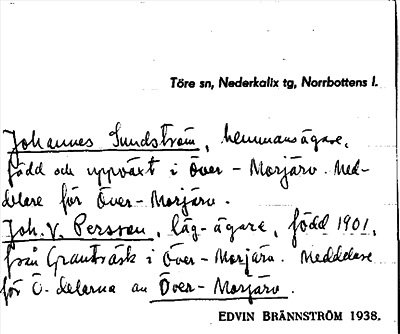 Töre sn, Nederkalix tg, Norrbottens l.
Johannes Sundström, hemmansägare,
född och uppväxt i Över-Morjärv. Med-
delare för Över-Morjärv.
Joh. V. Persson, läg-ägare, född 1901,
från Granträsk i Över-Morjärv. Meddelare
för Ö-delarna av Över-Morjärv.
EDVIN BRÄNNSTRÖM 1938.